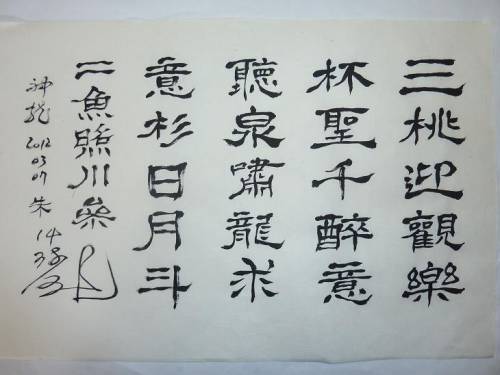 三桃迎觀樂
杯聖千醉意
聽泉嘯龍求
意杉日月斗
二魚縣川桑
神龍 2012 03 07 朱